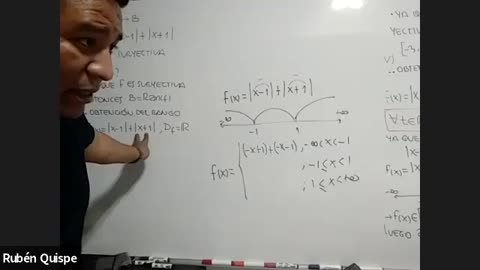 → B
-1|+|x+1|
SURYECTIVA
?
QUE f ES SURYECTIVA
ENTONCES B=Ran(f)
OBTENCIÓN DEL RANGO
= |x-1|+|x+1| , Df=ℝ
f(x)=|x-1|+|x+1|
-∞ -1 1 +∞
f(x)= { (-x+1)+(-x-1) , -∞<x<-1
, -1≤x<1
, 1≤x<+∞
• YA QU
YECTIV
V)
..OBTEN
YA QUE
f(x)=
→ f(x)∈
LUEGO
Rubén Quispe